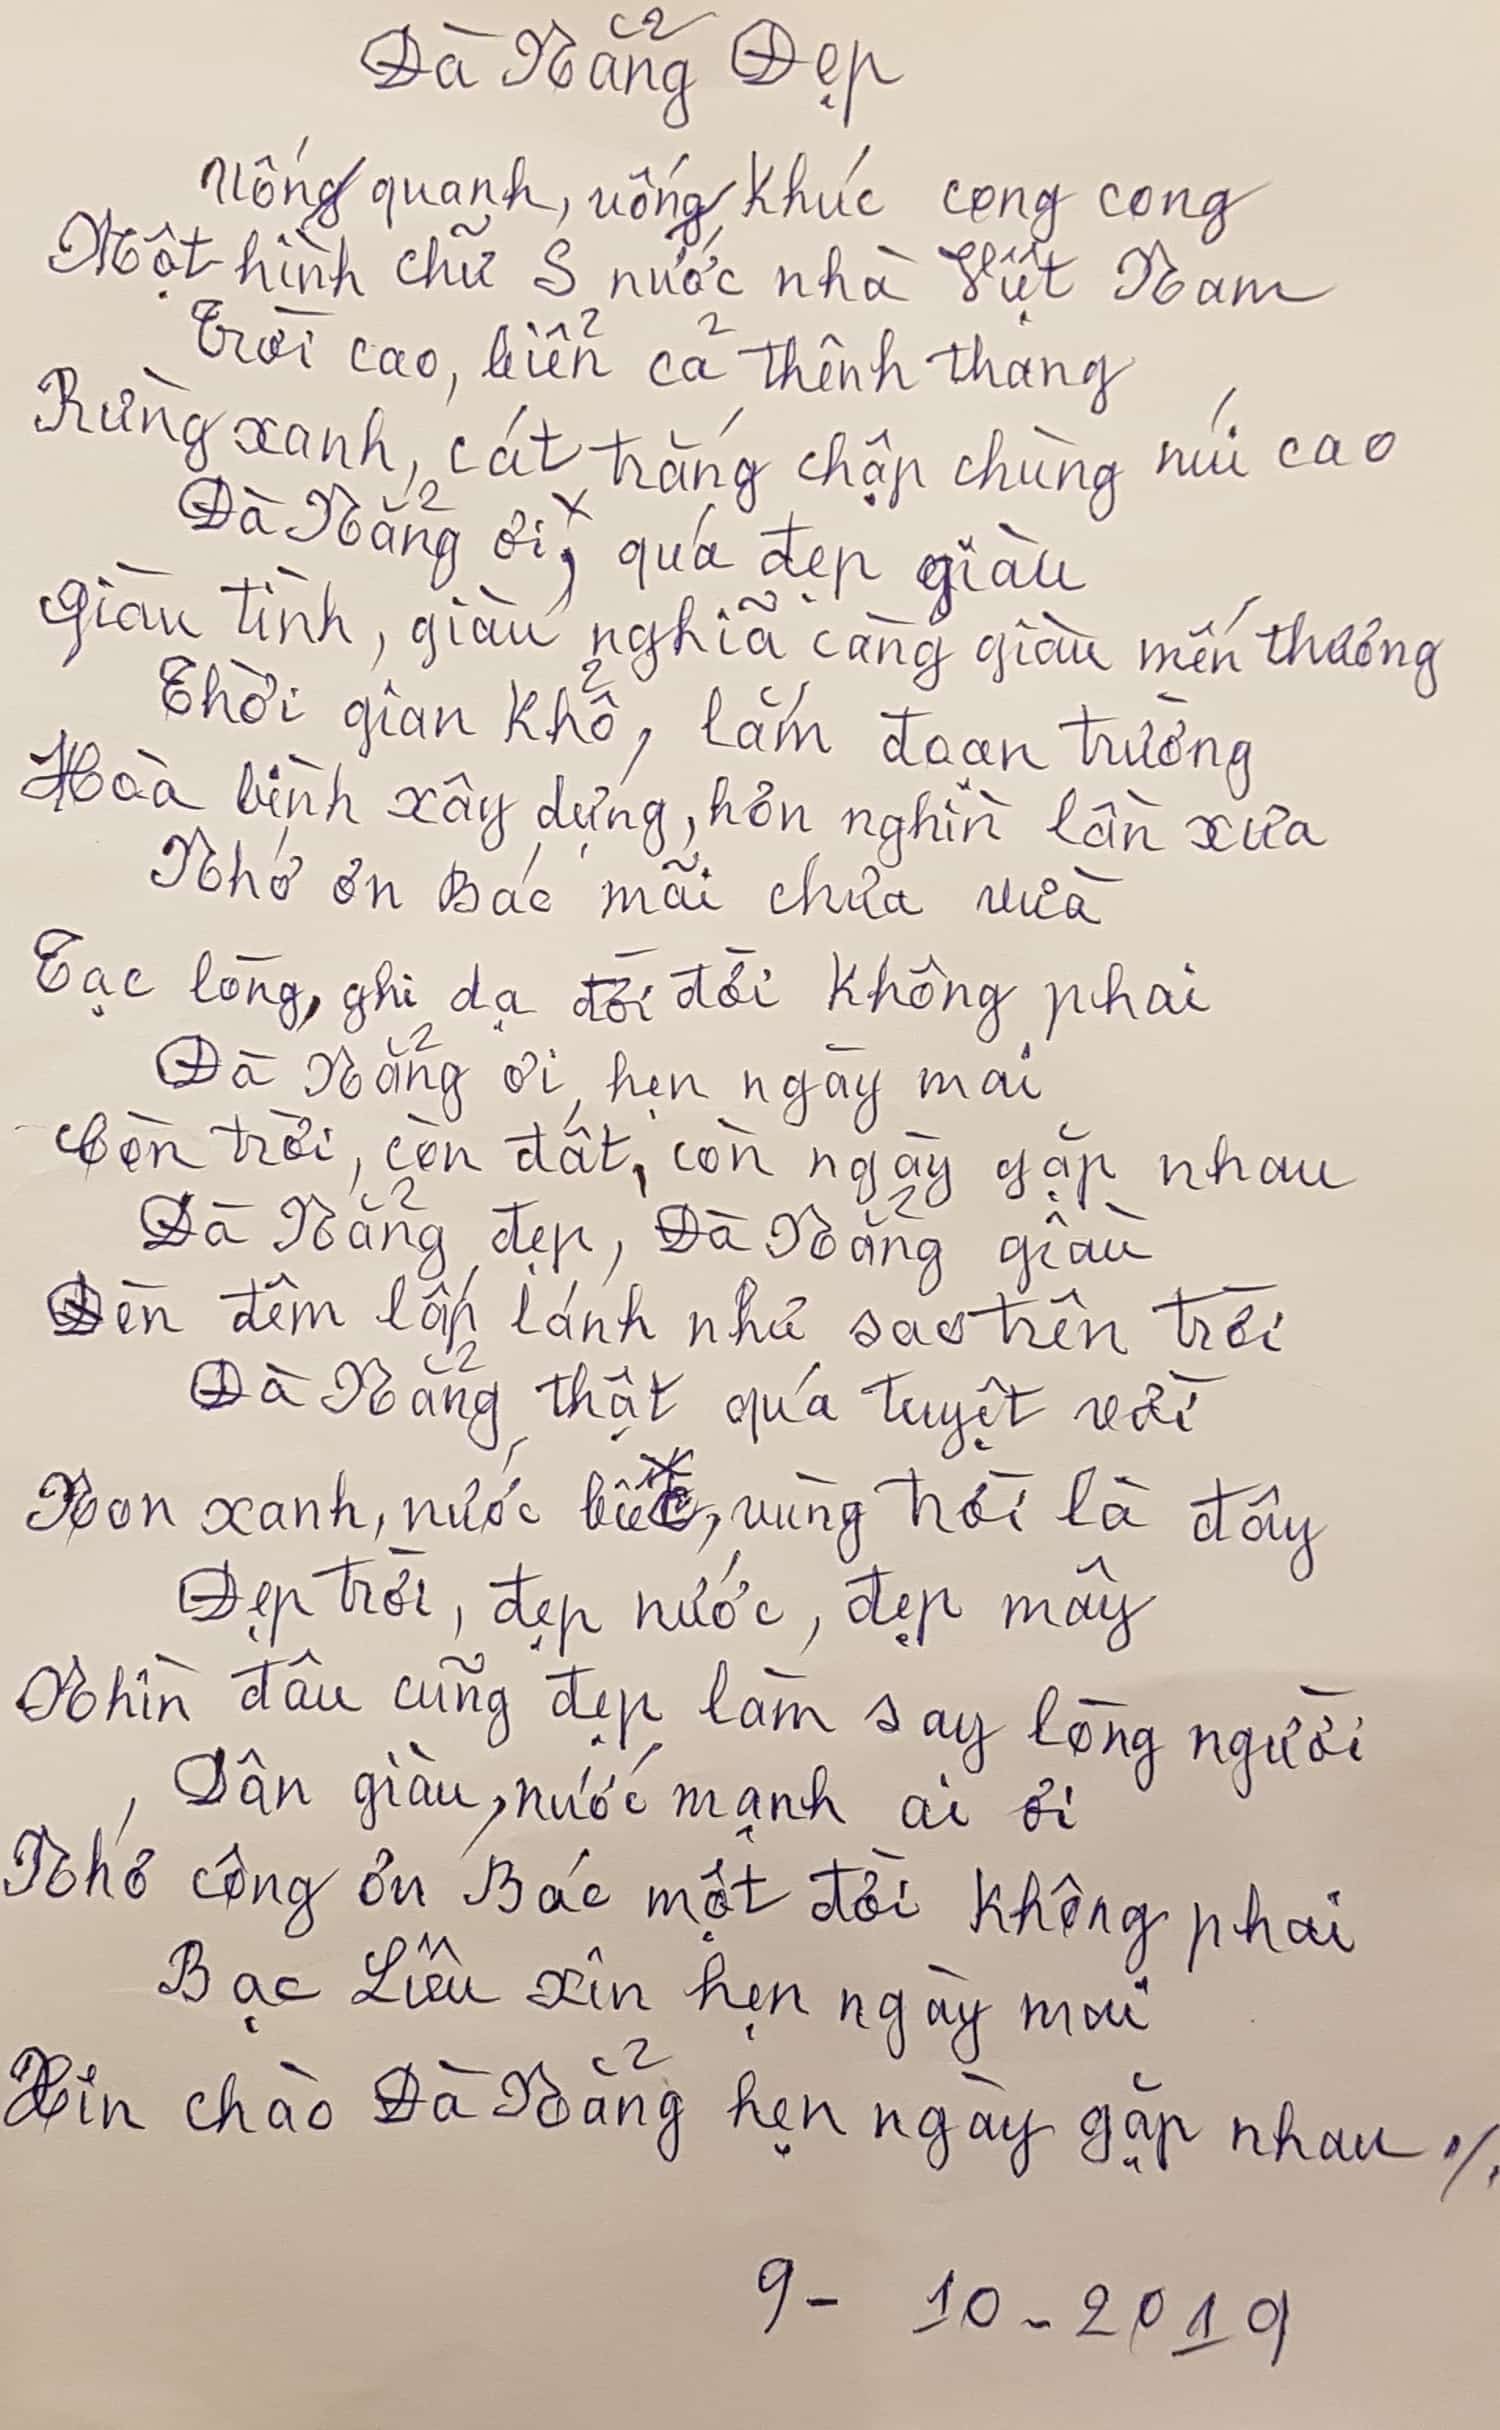 Đà Nẵng Đẹp
Uống quanh, uống khúc cong cong
Một hình chữ S nước nhà Việt Nam
Trời cao, biển cả thênh thang
Rừng xanh, cát trắng chập chùng núi cao
Đà Nẵng ơi, quá đẹp giàu
Giàu tình, giàu nghĩa càng giàu mến thương
Thời gian khổ, lắm đoạn trường
Hoà bình xây dựng, hơn nghìn lần xưa
Nhớ ơn Bác mãi chưa vừa
Tạc lòng, ghi dạ đời đời không phai
Đà Nẵng ơi, hẹn ngày mai
Còn trời, còn đất, còn ngày gặp nhau
Đà Nẵng đẹp, Đà Nẵng giàu
Đèn đêm lấp lánh như sao trên trời
Đà Nẵng thật quá tuyệt vời
Non xanh, nước biếc, vùng trời là đây
Đẹp trời, đẹp nước, đẹp mây
Nhìn đâu cũng đẹp làm say lòng người
Dân giàu, nước mạnh ai ơi
Nhớ công ơn Bác một đời không phai
Bạc Liêu xin hẹn ngày mai
Xin chào Đà Nẵng hẹn ngày gặp nhau ./.
9 - 10 - 2019